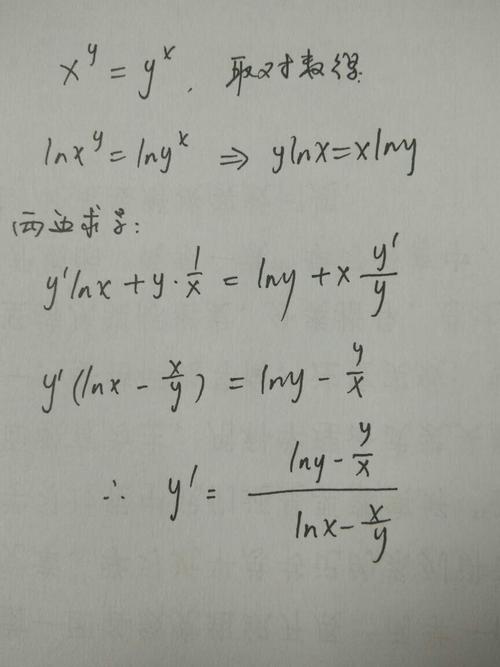 x^y = y^x, 取对数得:
lnx^y = lny^x ⇒ ylnx = xlny
两边求导:
y'lnx + y·1/x = lny + x y'/y
y'(lnx - x/y) = lny - y/x
∴ y' = (lny - y/x)/(lnx - x/y)